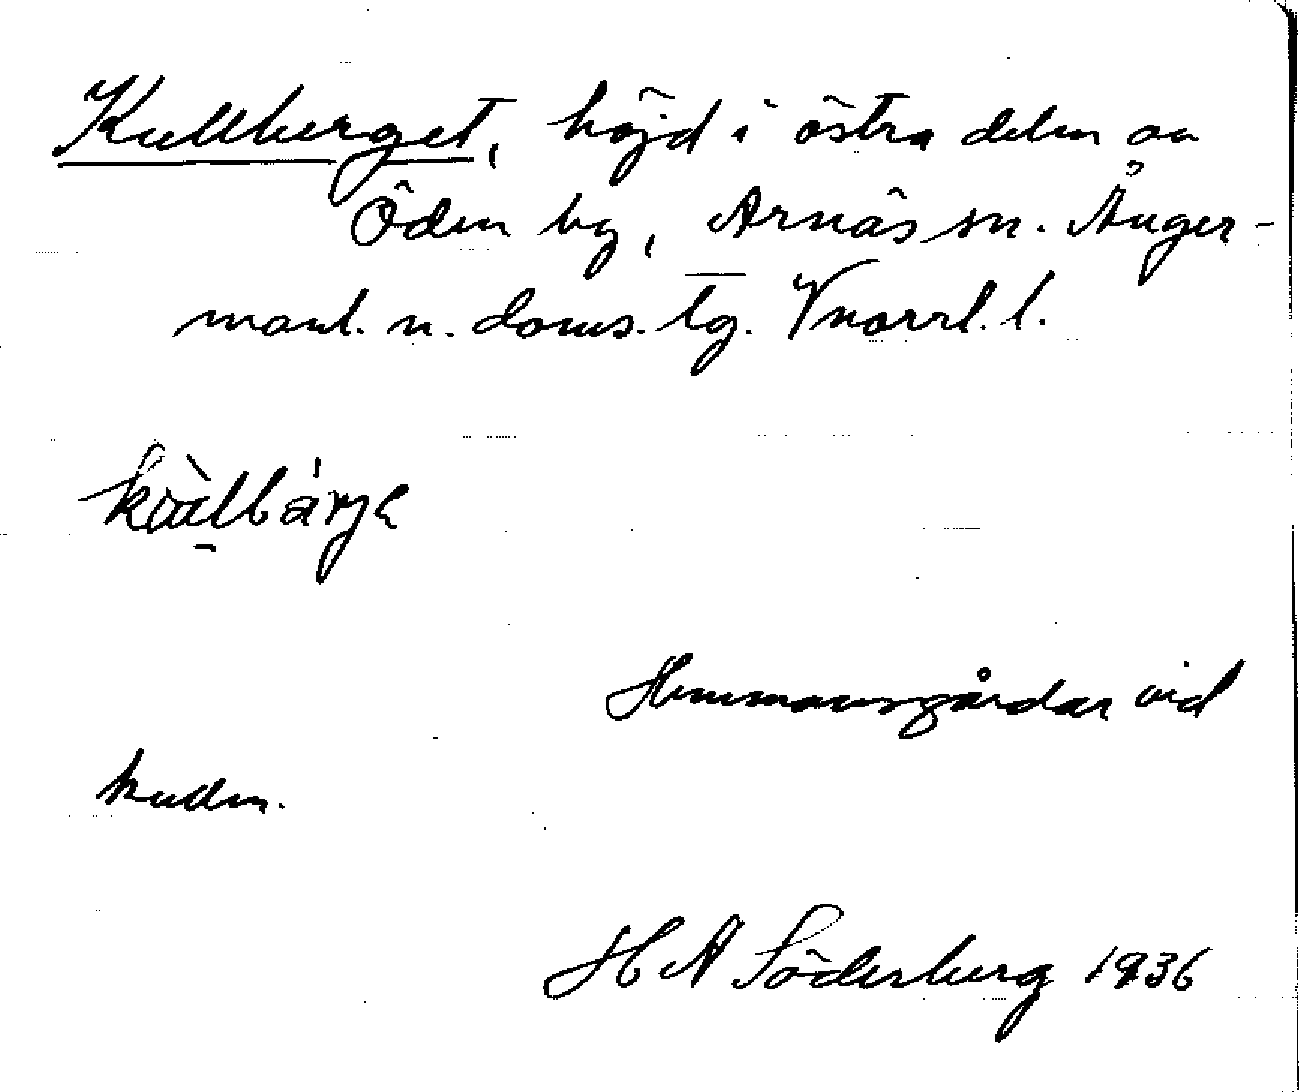 Kullberget, höjd i östra delen av
Öden by, Arnäs sn. Ånger-
manl. n. doms. lg. Vnorrl. l.
Hemmansgårdar vid
kuden.
H A Söderberg 1936